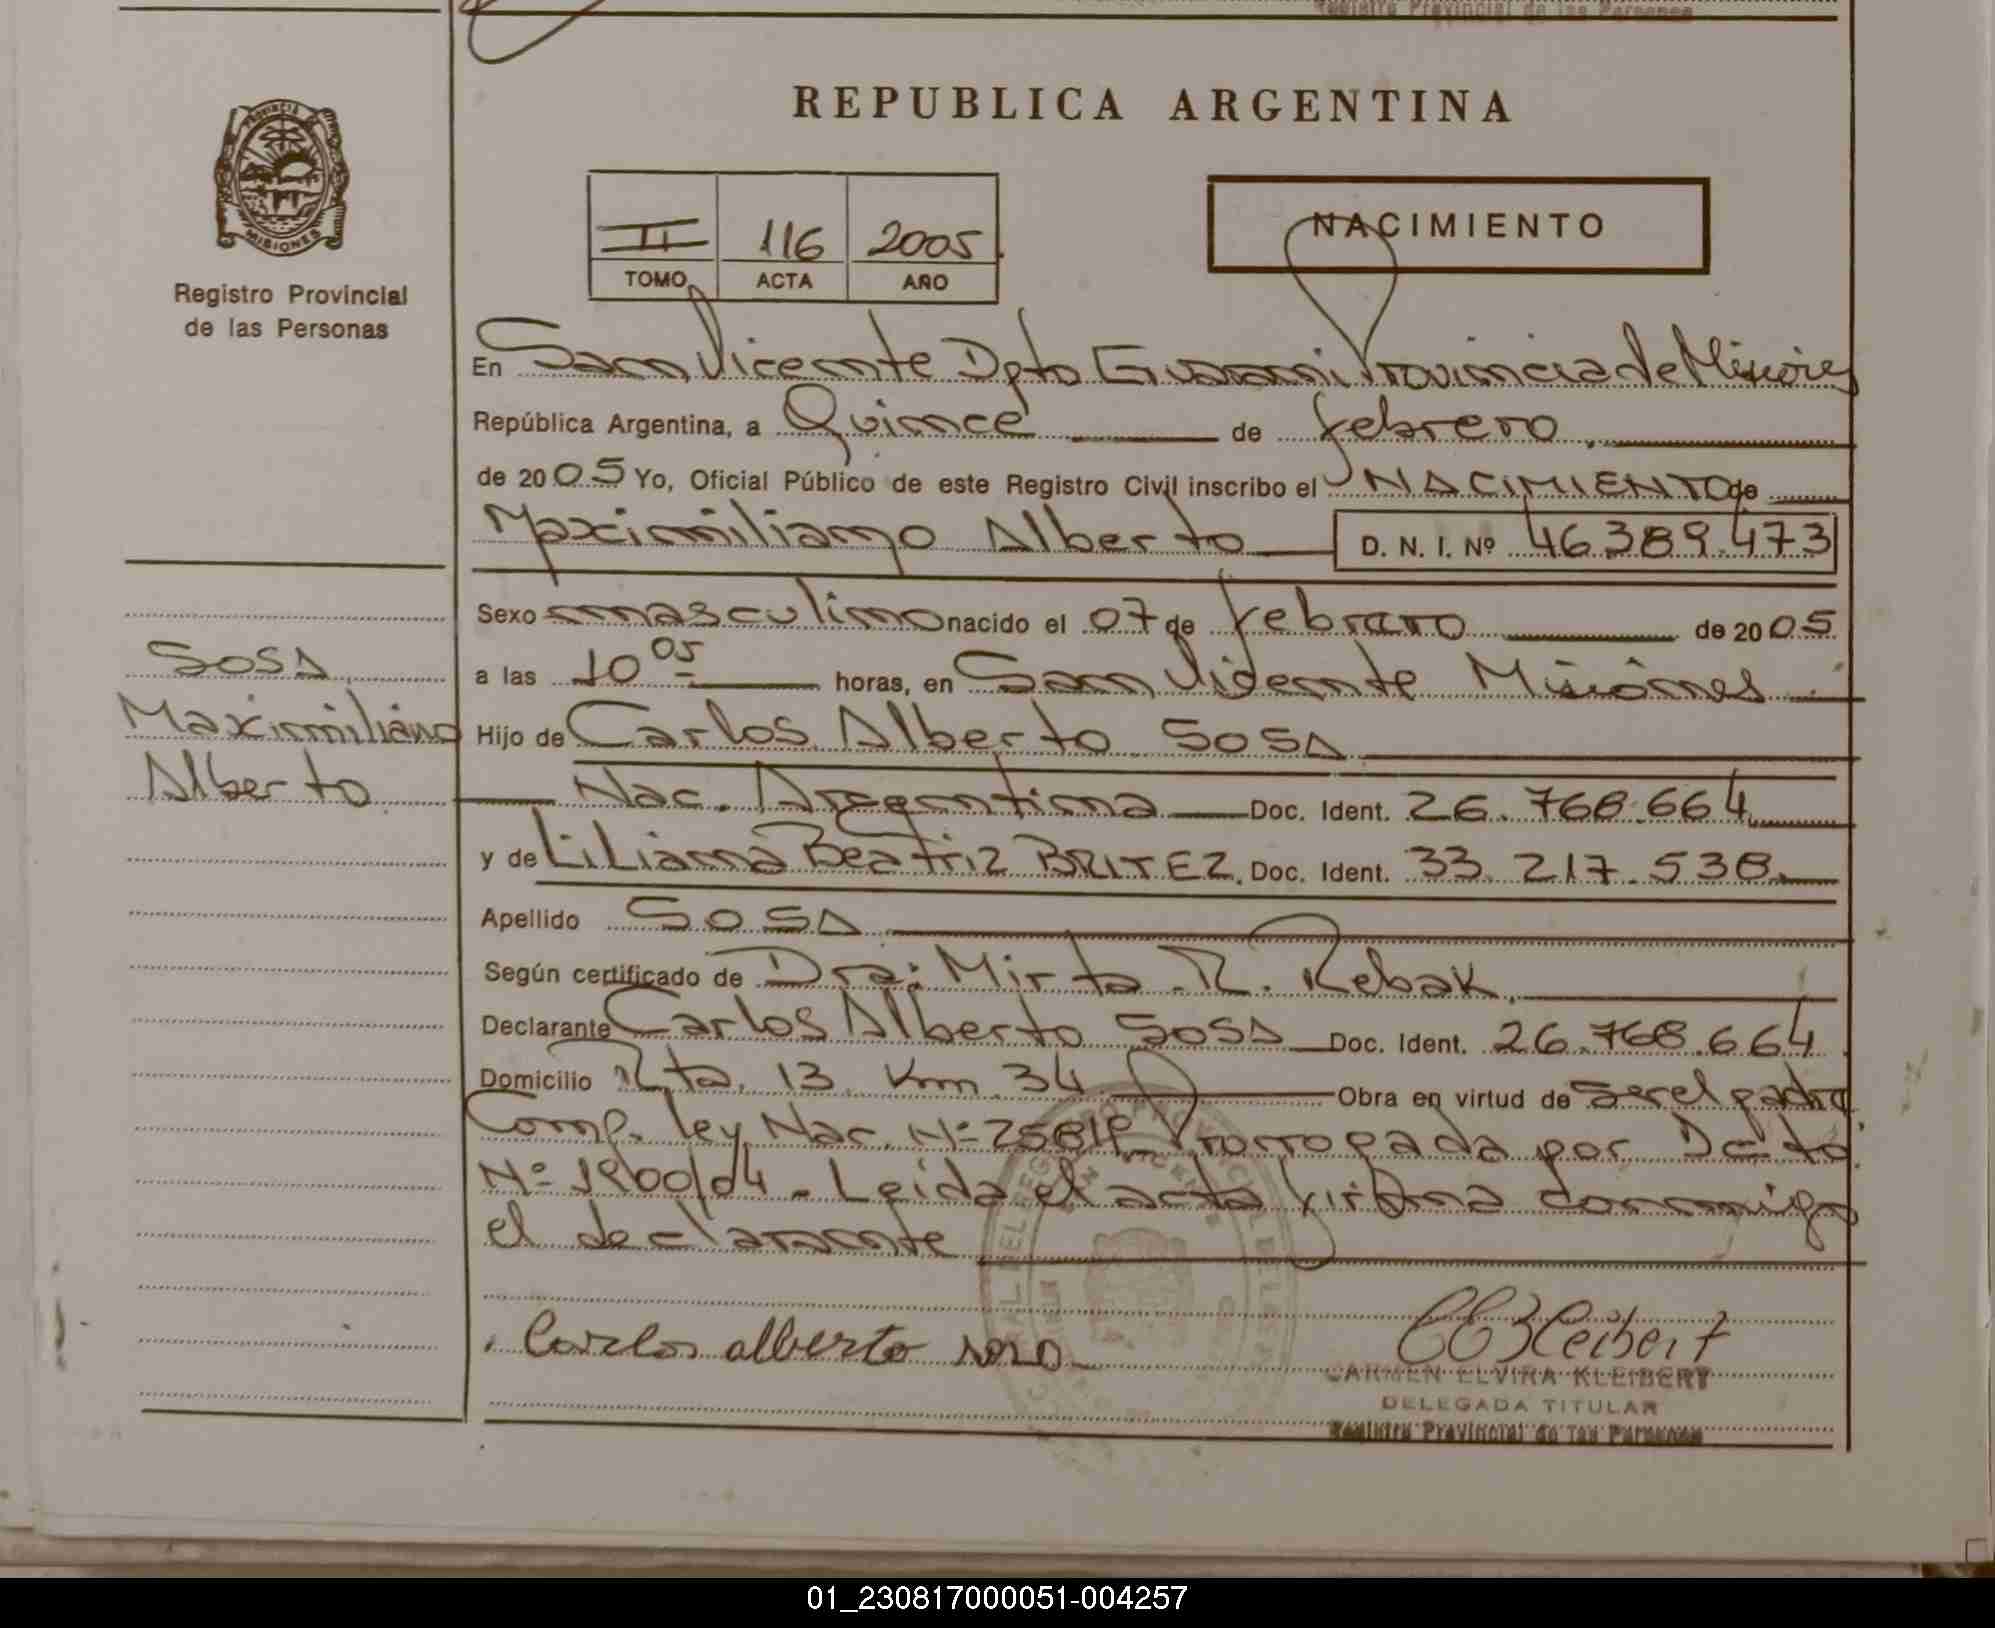 Registro Provincial de las Personas
REPUBLICA ARGENTINA
PROVINCIA DE
MISIONES
Registro Provincial
de las Personas
II 116 2005
TOMO ACTA AÑO
NACIMIENTO
En San Vicente Dpto Guarani Provincia de Misiones
República Argentina, a Quince de febrero
de 2005 Yo, Oficial Público de este Registro Civil inscribo el NACIMIENTO de
Maximiliano Alberto D. N. I. Nº 46.389.473
Sexo masculino nacido el 07 de febrero de 2005
a las 10 05 horas, en San Vicente Misiones
Sosa
Maximiliano
Alberto
Hijo de Carlos Alberto SOSA
Nac. Argentina Doc. Ident. 26.768.664
y de Liliana Beatriz BRITEZ. Doc. Ident. 33.217.538
Apellido SOSA
Según certificado de Dra: Mirta R. Rebak
Declarante Carlos Alberto SOSA Doc. Ident. 26.768.664
Domicilio Rta. 13 Km 34 Obra en virtud de ser el padre
Comp. ley Nac. Nº 25819 Prorrogada por Dcto
Nº 1900/04 - Leida el acta firma conmigo
el declarante
Carlos alberto soso
CARMEN ELVIRA KLEIBERT
DELEGADA TITULAR
Registro Provincial de las Personas
01_230817000051-004257